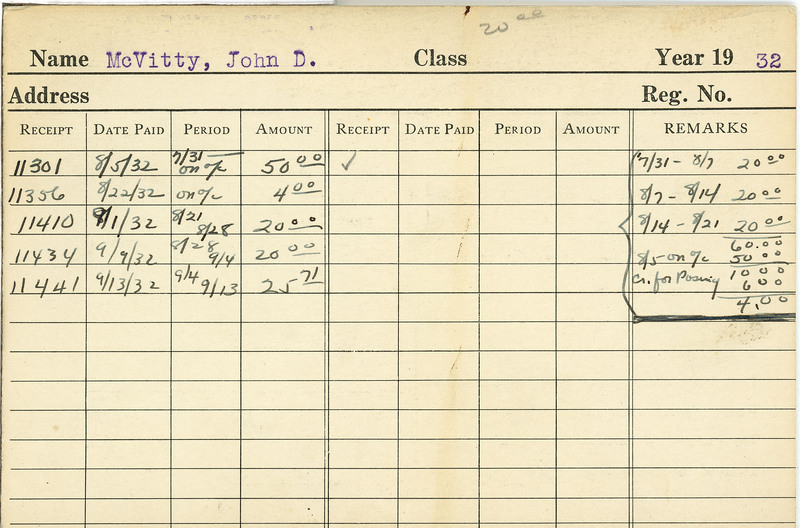 20 00
Name McVitty, John D. Class Year 19 32
Address Reg. No.
RECEIPT DATE PAID PERIOD AMOUNT RECEIPT DATE PAID PERIOD AMOUNT REMARKS
11301 8/5/32 7/31 — on a/c 50 00 ✓ 7/31 - 8/7 20 00
11356 8/22/32 on a/c 4 00 8/7 - 8/14 20 00
11410 9/1/32 8/21 8/28 20 00 8/14 - 8/21 20 00
60.00
11434 9/9/32 8/28 9/4 20 00 8/5 on a/c 50 00
11441 9/13/32 9/4 9/13 25 71 10 00
Cr. for Posing 6 00
4.00